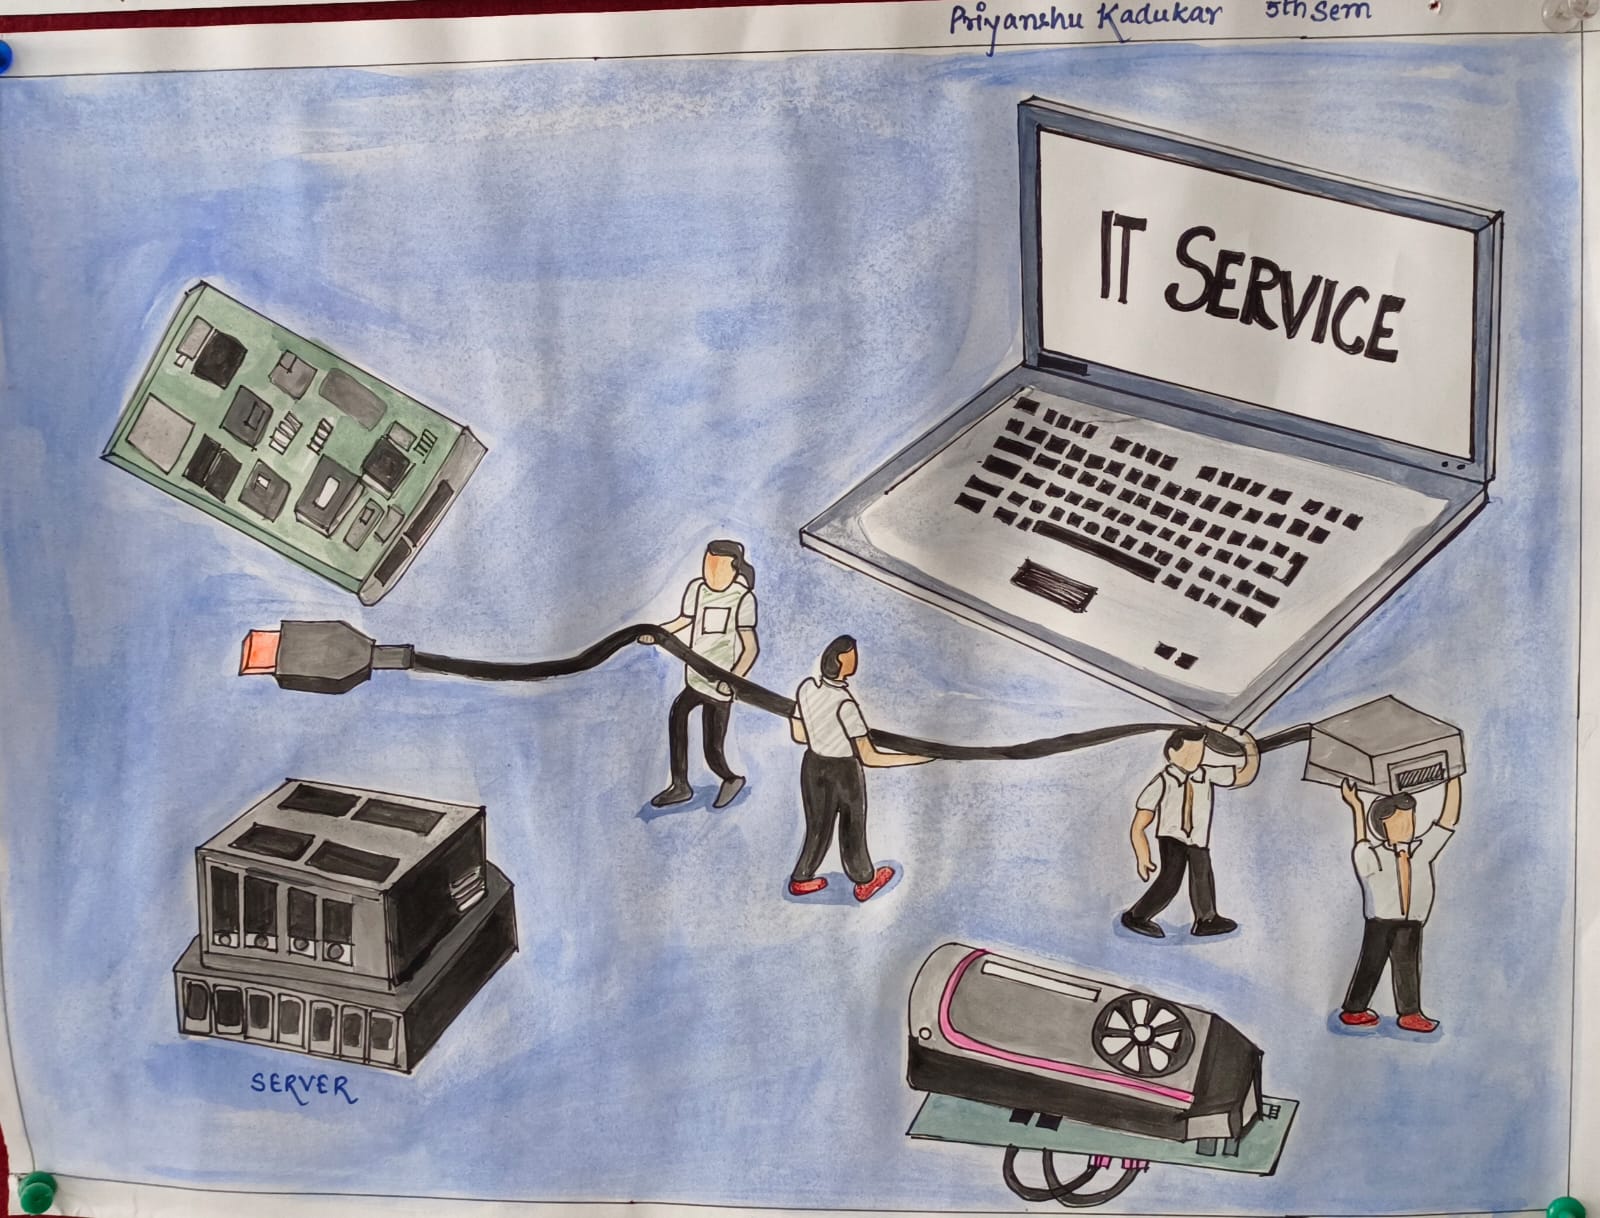 Priyanshu Kadukar 5th Sem
IT SERVICE
SERVER